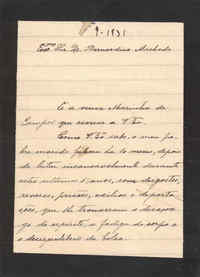 9-1931
Exº Sr. Dr. Bernardino Machado
É a viuva Marinha de
Campos que escreve a V. Exª
Como V. Exª sabe, o meu po-
bre marido ha 10 meses, depois
de lutar incansavelmente durante
estes ultimos 5 anos, com desgostos,
reveses, prisões, exilios e deporta-
ções, que lhe trouxeram o descora-
ço do espirito, a fadiga do corpo e
o desequilibrio da bolsa.